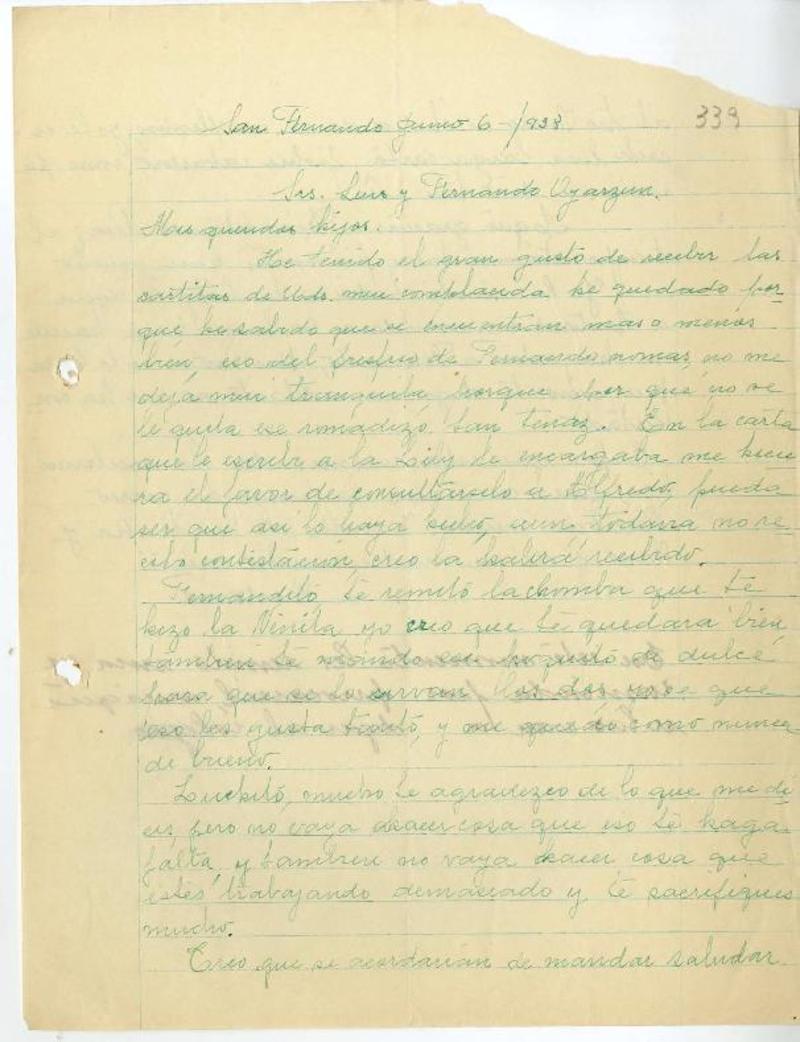 339
San Fernando Junio 6-/938
Srs. Luis y Fernando Oyarzun.
Mis queridos hijos.
He tenido el gran gusto de recibir las
cartitas de Uds. mui complacida he quedado por
que he sabido que se encuentran mas o menos
bien, eso del resfrio de Fernando nomas, no me
deja mui tranquila porque por qué no se
le quita ese romadizo tan tenaz. En la carta
que le escribi a la Lily le encargaba me hicie
ra el favor de consultarselo a Alfredo, pueda
ser que asi lo haya hecho, aun todavia no re
cibo contestación, creo la habrá recibido.
Fernandito te remito la chomba que te
hizo la Ninita, yo creo que te quedara bien
tambien te mando un poquito de dulce
para que se lo sirvan los dos, yo se que
eso les gusta tanto, y me quedo como nunca
de bueno.
Luchito, mucho te agradezco de lo que me di
ces, pero no vaya aser cosa que eso te haga
falta, y tambien no vaya hacer cosa que
estés trabajando demasiado y te sacrifiques
mucho.
Creo que se acordarian de mandar saludar